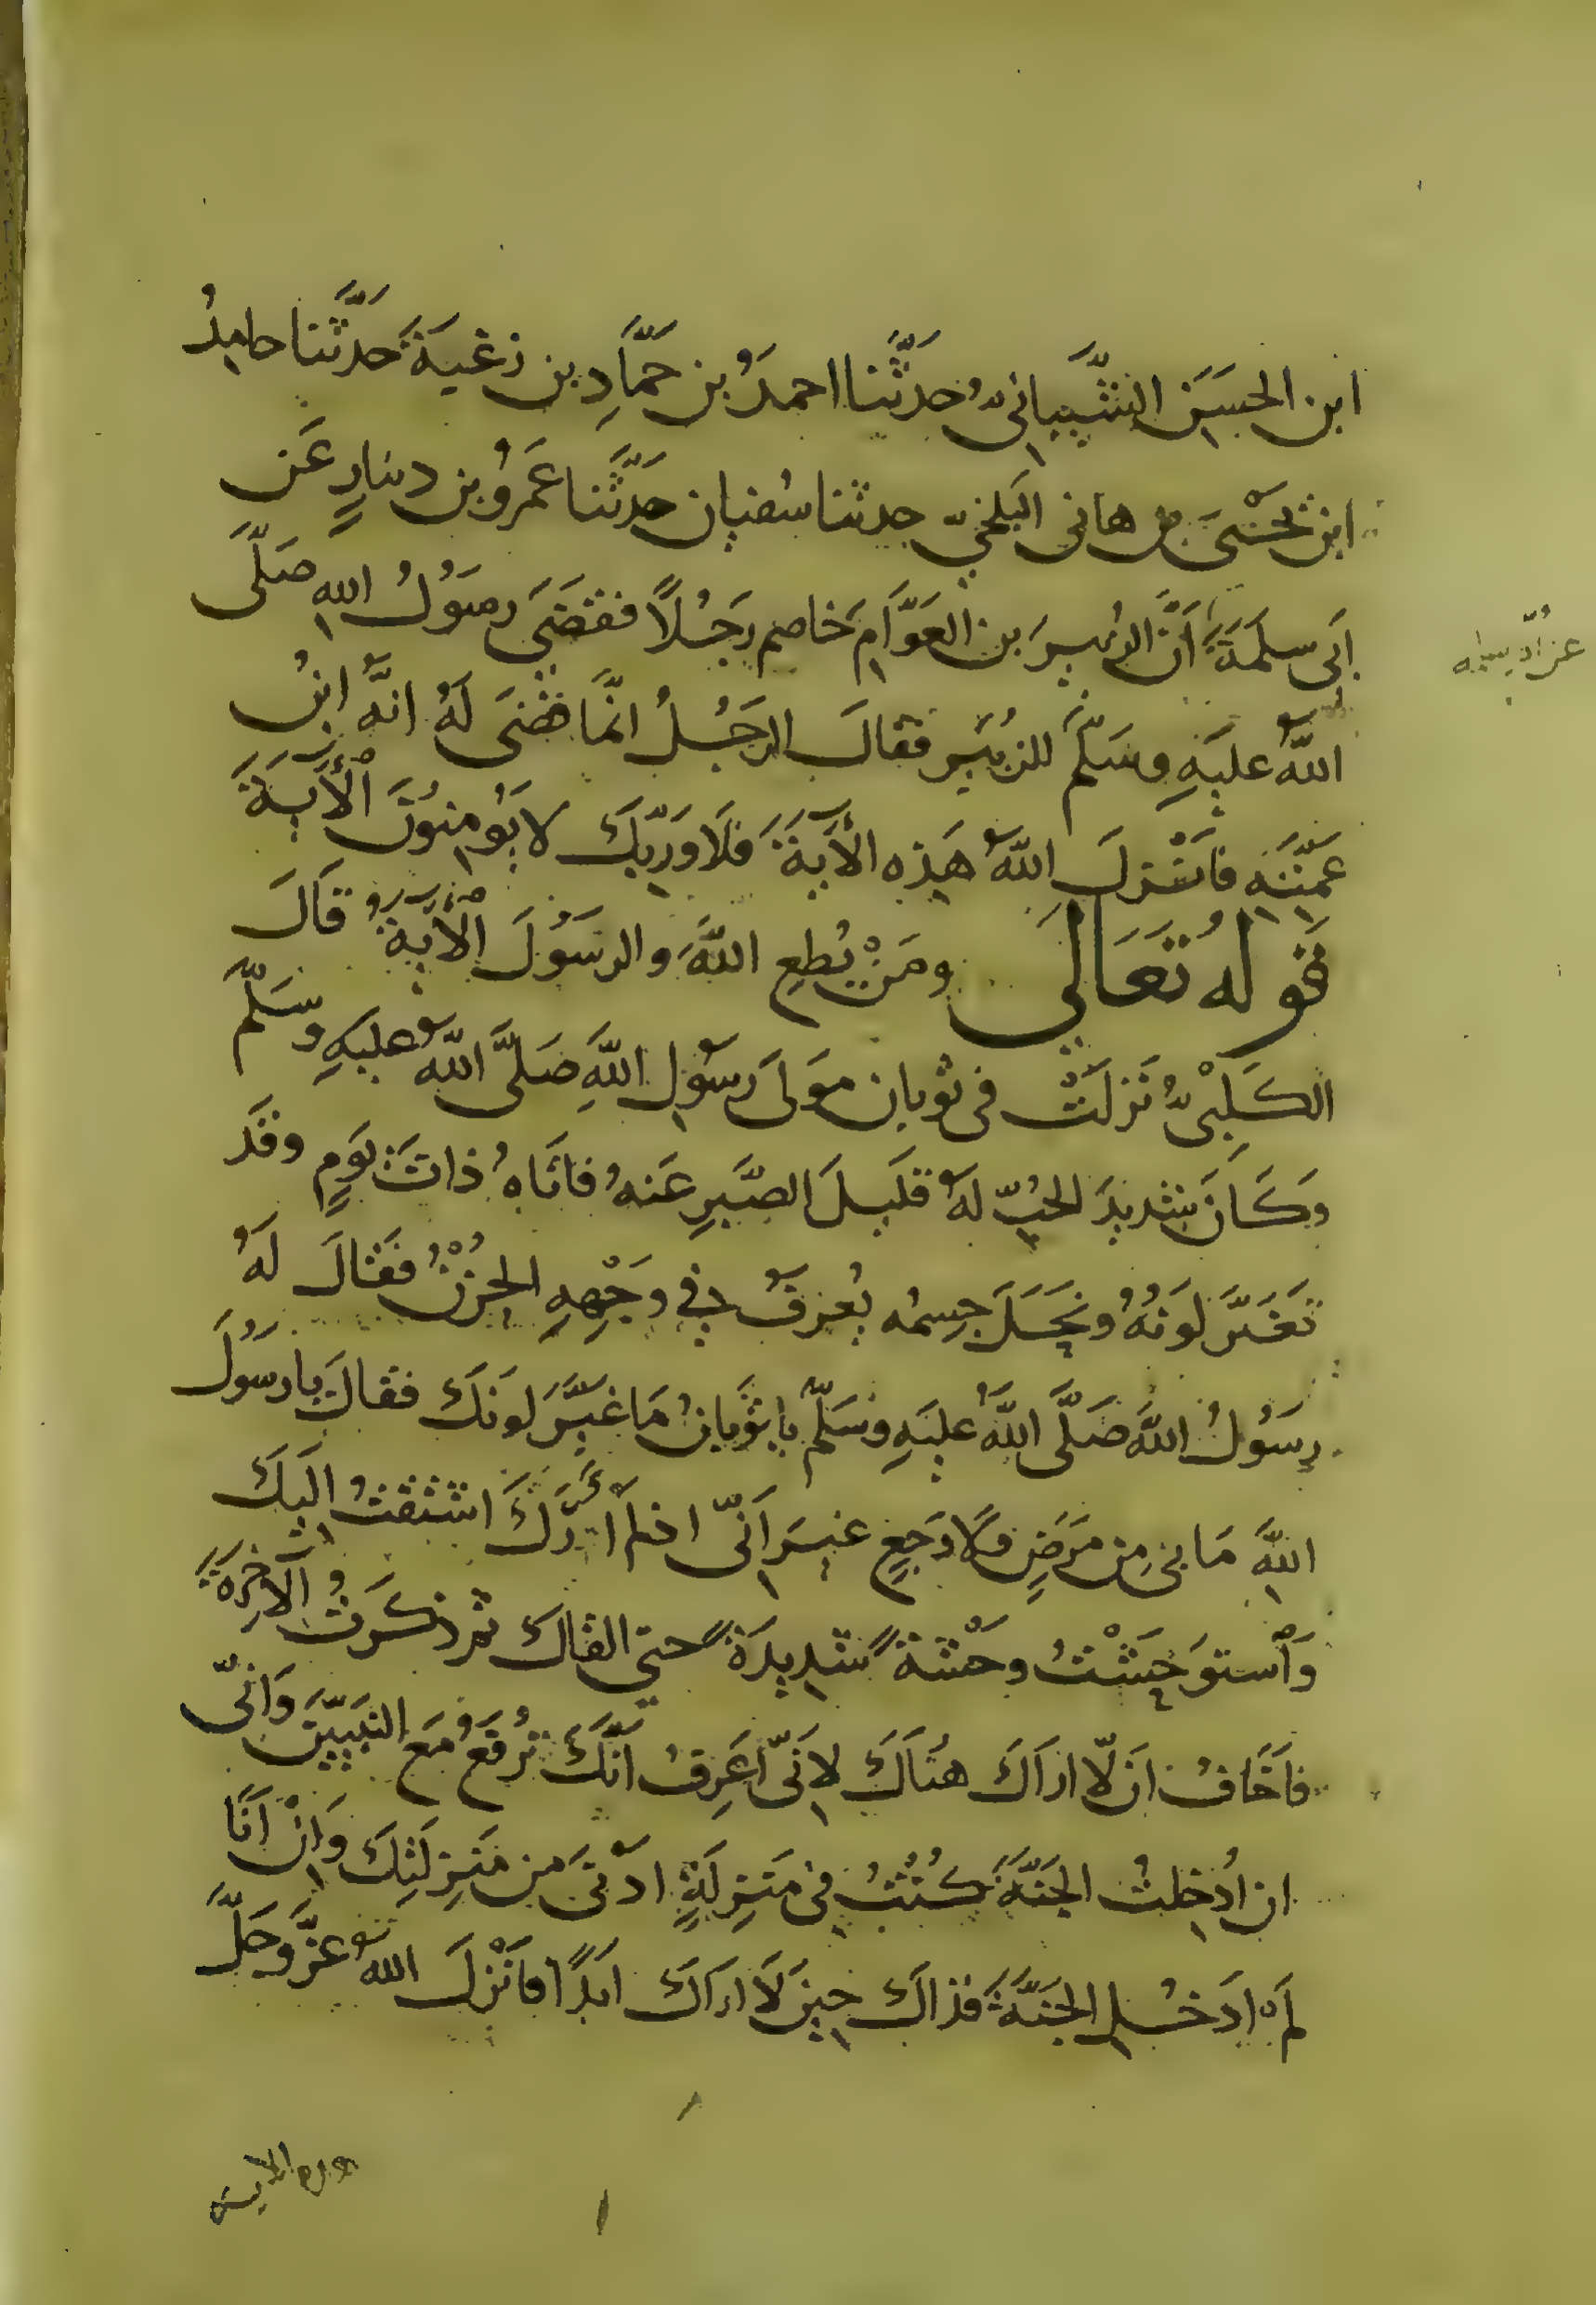 ابن الحسَين الشَّيبانىُّ حدَّثَنا احمدُ بن حمَّادِ بن زغبةَ حدَّثَنا حامِدُ
ابن يَحْيىَ بن هانى البَلخىّ حدثنا سُفيان حدَّثَنا عَمرُو بن دينارٍ عَن
اَبى سلمَةَ اَنَّ الزُبيرَ بن العَوَّامِ خاصم رَجُلاً فقضَىَ رسوُلُ اللهِ صَلَّى
اللهُ عليَهِ وسَلّمَ للزبَيرِ فقالَ الرجَلُ انمَّا قضىَ لَهُ انهَّ ابنُ
عمَّتهِ فانْزلَ اللهُ هَذِه الآيةَ فلَا وَرَبِّكَ لا يؤُمِنوُنَ الآيَةَ
قوله تَعَالىَ ومَنْ يُطِعِ اللهَ والرسَوُلَ الآية قاَلَ
الكَلبْىُّ نَزلَتْ فى ثوبان موَلىَ رسوُلِ اللهِ صَلىَّ اللهُ عليَهِ وسَلّمَ
وَكانَ شديدَ الحبُّ لهُ قليَلَ الصَّبرِ عَنهُ فاتاَهُ ذاتَ يَومٍ وقَد
تغَيَّر لَونهُ ونحَلَ جِسمُه يُعرفُ في وَجْهِهِ الحُزْنُ فقَالَ لَهُ
رسَوُلُ اللهَ صَلَّى اللهُ عليَهِ وسَلّمَ يا ثوَبانُ مَا غيَّرَ لونَكَ فقالَ يا رسَوُلَ
اللهِ مَا بىِ مِن مَرَضٍ ولَا وَجَعٍ غيرَ اَنّى اذا لم اَرَكَ اشتقتُ اليَكَ
وَاستوَحَشْتُ وحَشْةً شدِيدَةً حتى القاكَ ثم ذكرَتُ الآخِرَةَ
فاَخَافُ اَن لاّ ارَاكَ هنُاَكَ لِانَىّ اَعَرِفُ انَّكَ تُرفَعُ مَع النبَيّيَن وَانىّ
ان اُدخِلتُ الجنَّةَ كنُتُ فى مَنزِلَةٍ ادَنىَ مِن مَنزِلَتِكَ وَاِنْ اَنا
لمَ ادَخُلِ الجنَّةَ فذاكَ حِينَ لَا ارَاكَ ابَدًا فانَزْلَ اللهُ عزَّ وجَلَّ
هذه الاية